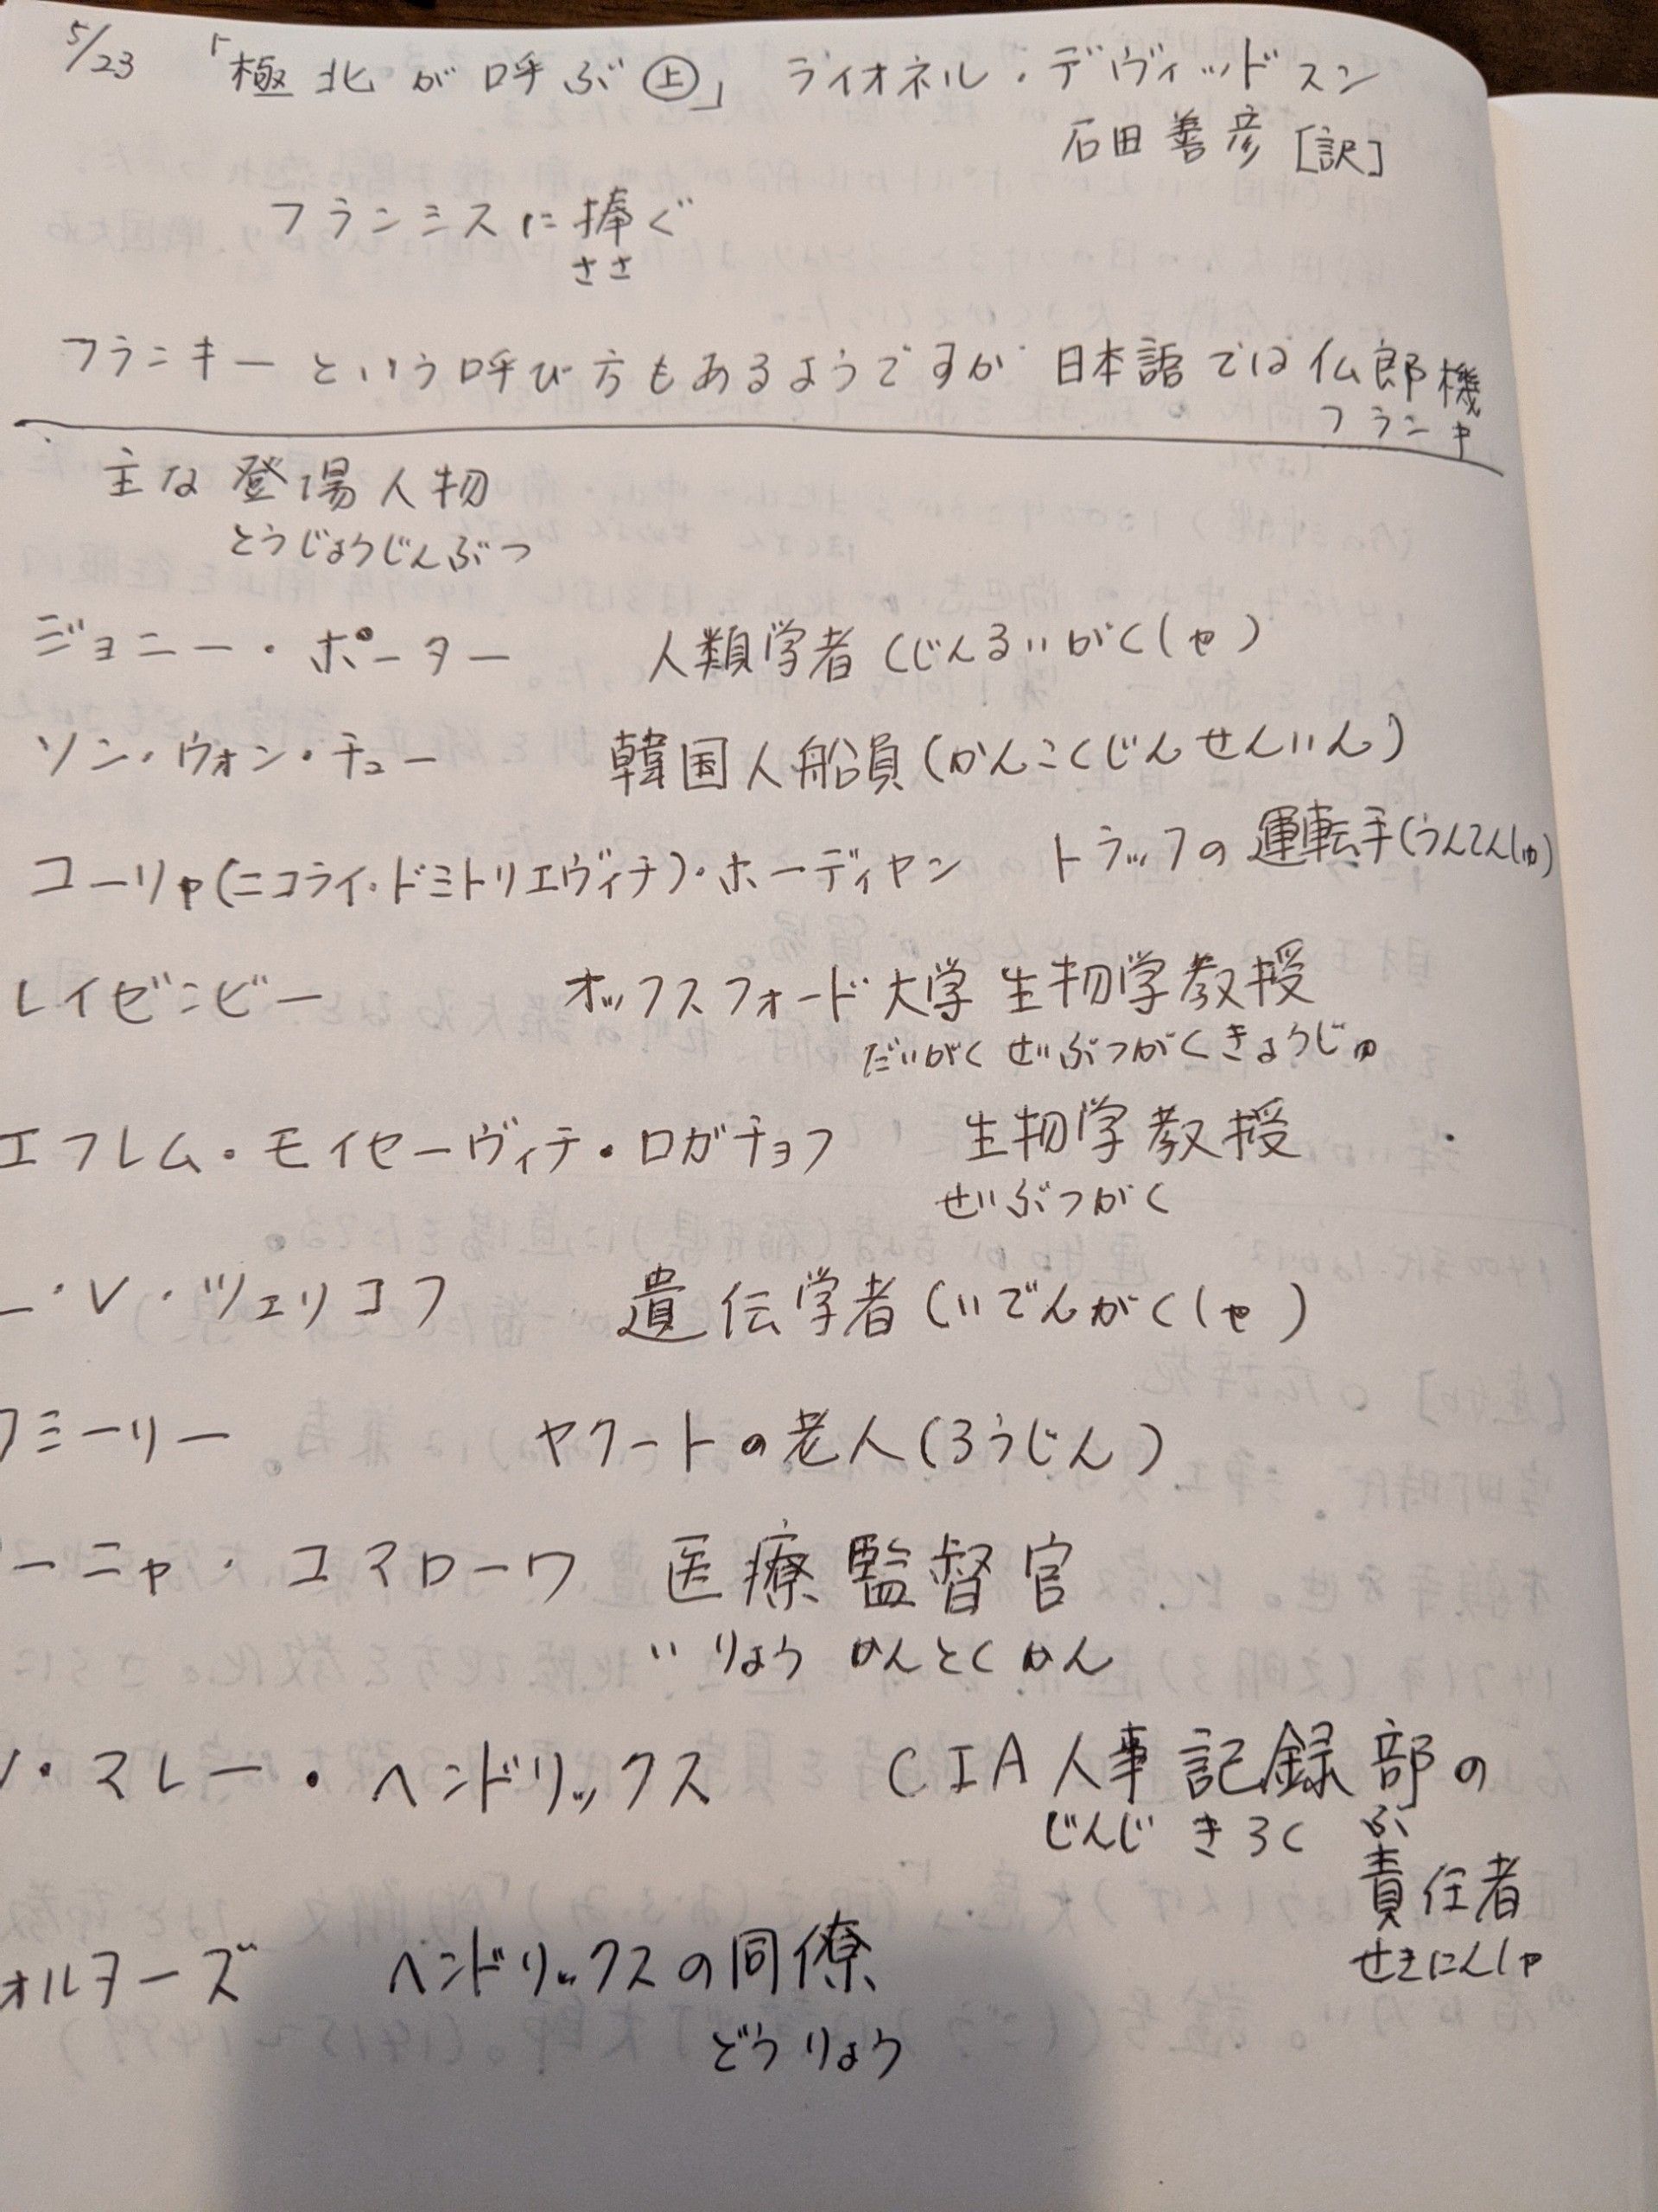 5/23 「極北が呼ぶ㊤」 ライオネル・デヴィッドスン
石田善彦[訳]
フランシスに捧ぐ
ささ
フランキーという呼び方もあるようですが 日本語では仏郎機
フランキ
主な登場人物
とうじょうじんぶつ
ジョニー・ポーター 人類学者(じんるいがくしゃ)
ソン・ウォン・チュー 韓国人船員(かんこくじんせんいん)
コーリャ(ニコライ・ドミトリエヴィチ)・ホーディヤン トラックの運転手(うんてんしゅ)
レイゼンビー オックスフォード大学生物学教授
だいがく せいぶつがくきょうじゅ
エフレム・モイセーヴィチ・ロガチョフ 生物学教授
せいぶつがく
・V・ツェリコフ 遺伝学者(いでんがくしゃ)
ミーリー ヤクートの老人(ろうじん)
ーニャ・コマローワ 医療監督官
いりょう かんとくかん
・マレー・ヘンドリックス CIA人事記録部の
じんじ きろく ぶ
責任者
せきにんしゃ
ォルターズ ヘンドリックスの同僚
どうりょう